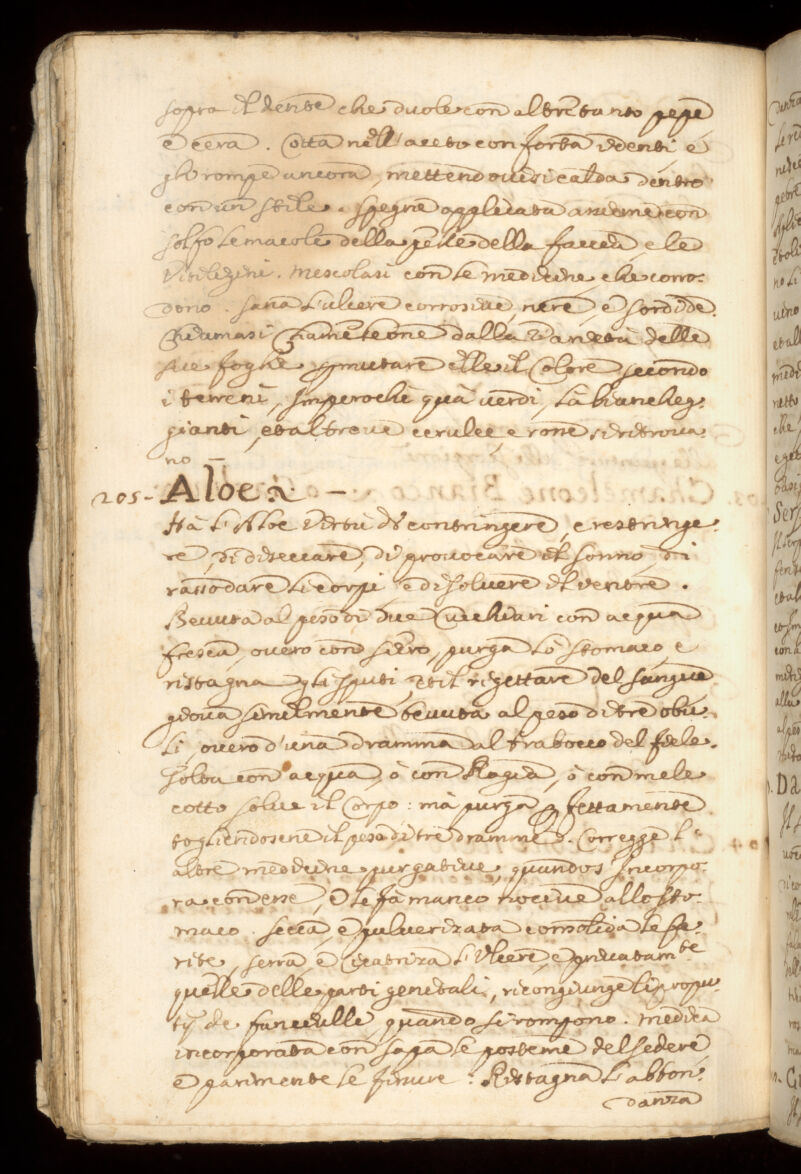 sopra il dente che duole con altre tanto pepe
e cera. Cotta nell'aceto conforta i denti, e
gli rompe ancora, mettendovisi calda dentro
con un stile. Spegne applicata insieme con
solfo le macole della pelle della faccia, e le
Vitiligini. Mescolasi con le medicine, che corro-
dono. Sana l'ulcere corrosive, nere, e sordide.
Chiamasi Chameleone dalla Varietà delle
sue foglie mutare elle il Colore secondo
i terreni, Imperochè quà verdi, là biancheg-
gianti, et altrove cerulee, e rosse si ritrova-
no
205- Aloe a. –
Hà l'Aloe virtù di contringere, e restringe-
re, di diseccare, di provocare il sonno, di
rassodare li corpi e disolvere il ventre.
Bevuta al peso di due Cuchiari con acqua
fresca, overo con siero, purga lo stomaco, e
ristagna gli sputi, et il rigettare del sangue
giova similmente bevuta al peso di tre obu-
li, overo d'una dramma al trabocco del fiele.
Solta con acqua, ò con Ragia, ò con mele
cotto solve il Corpo: mà purga pfettamente
togliendosene il peso di tre dramme. Corregge l'
altre medicine purgative, quando s'Incorpo-
ra con esse, e le fà manco nocive allo sto-
maco. Secca, e pulverizata consolida le fe-
rite, serra, e Cicatriza l'Ulcere, e privatam.te
quelle delle parti genitali, ricongiunge li propu-
tij de fanciulle, quando si rompono. Medica
incorporata con sapa le posteme del sedere
e parimente le fissure: Ristagna l'abbon-
danza